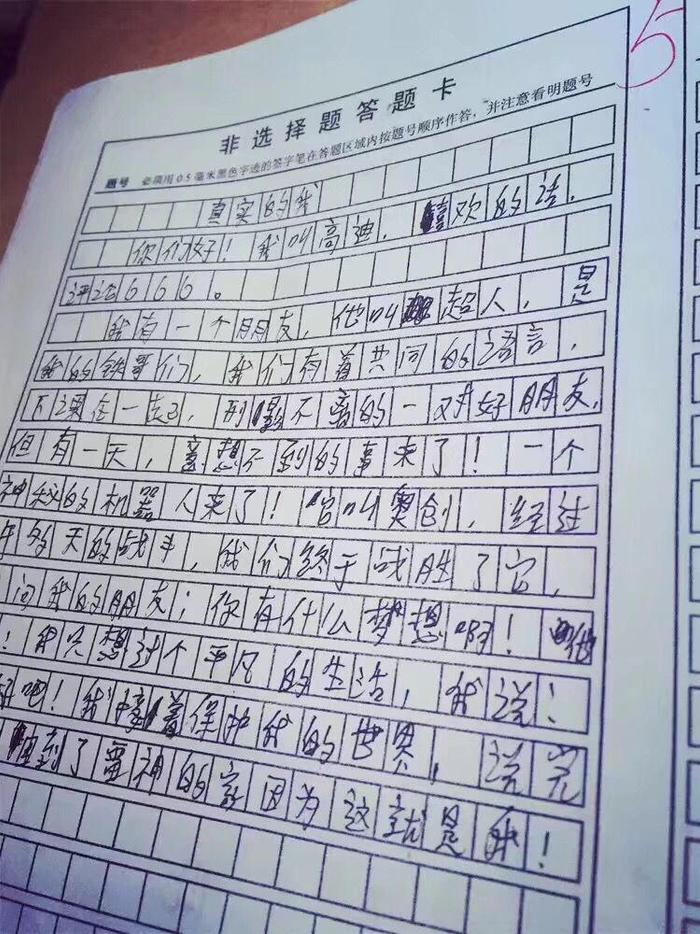 5
非选择题答题卡
题号 必须用0.5毫米黑色字迹的签字笔在答题区域内按题号顺序作答，并注意看明题号
真实的我
你们好！我叫高迪. 喜欢的话.
评论666。
我有一个朋友，他叫超人，是
我的铁哥们，我们有着共同的语言，
下课在一起，形影不离的一对好朋友，
但有一天，意想不到的事来了！一个
神秘的机器人来了！它叫奥创，经过
多天的战斗，我们终于战胜了它，
问我的朋友；你有什么梦想啊！他
！我只想过个平凡的生活，我说！
好吧！我接着保护我的世界，说完
到了雷神的家因为这就是我！